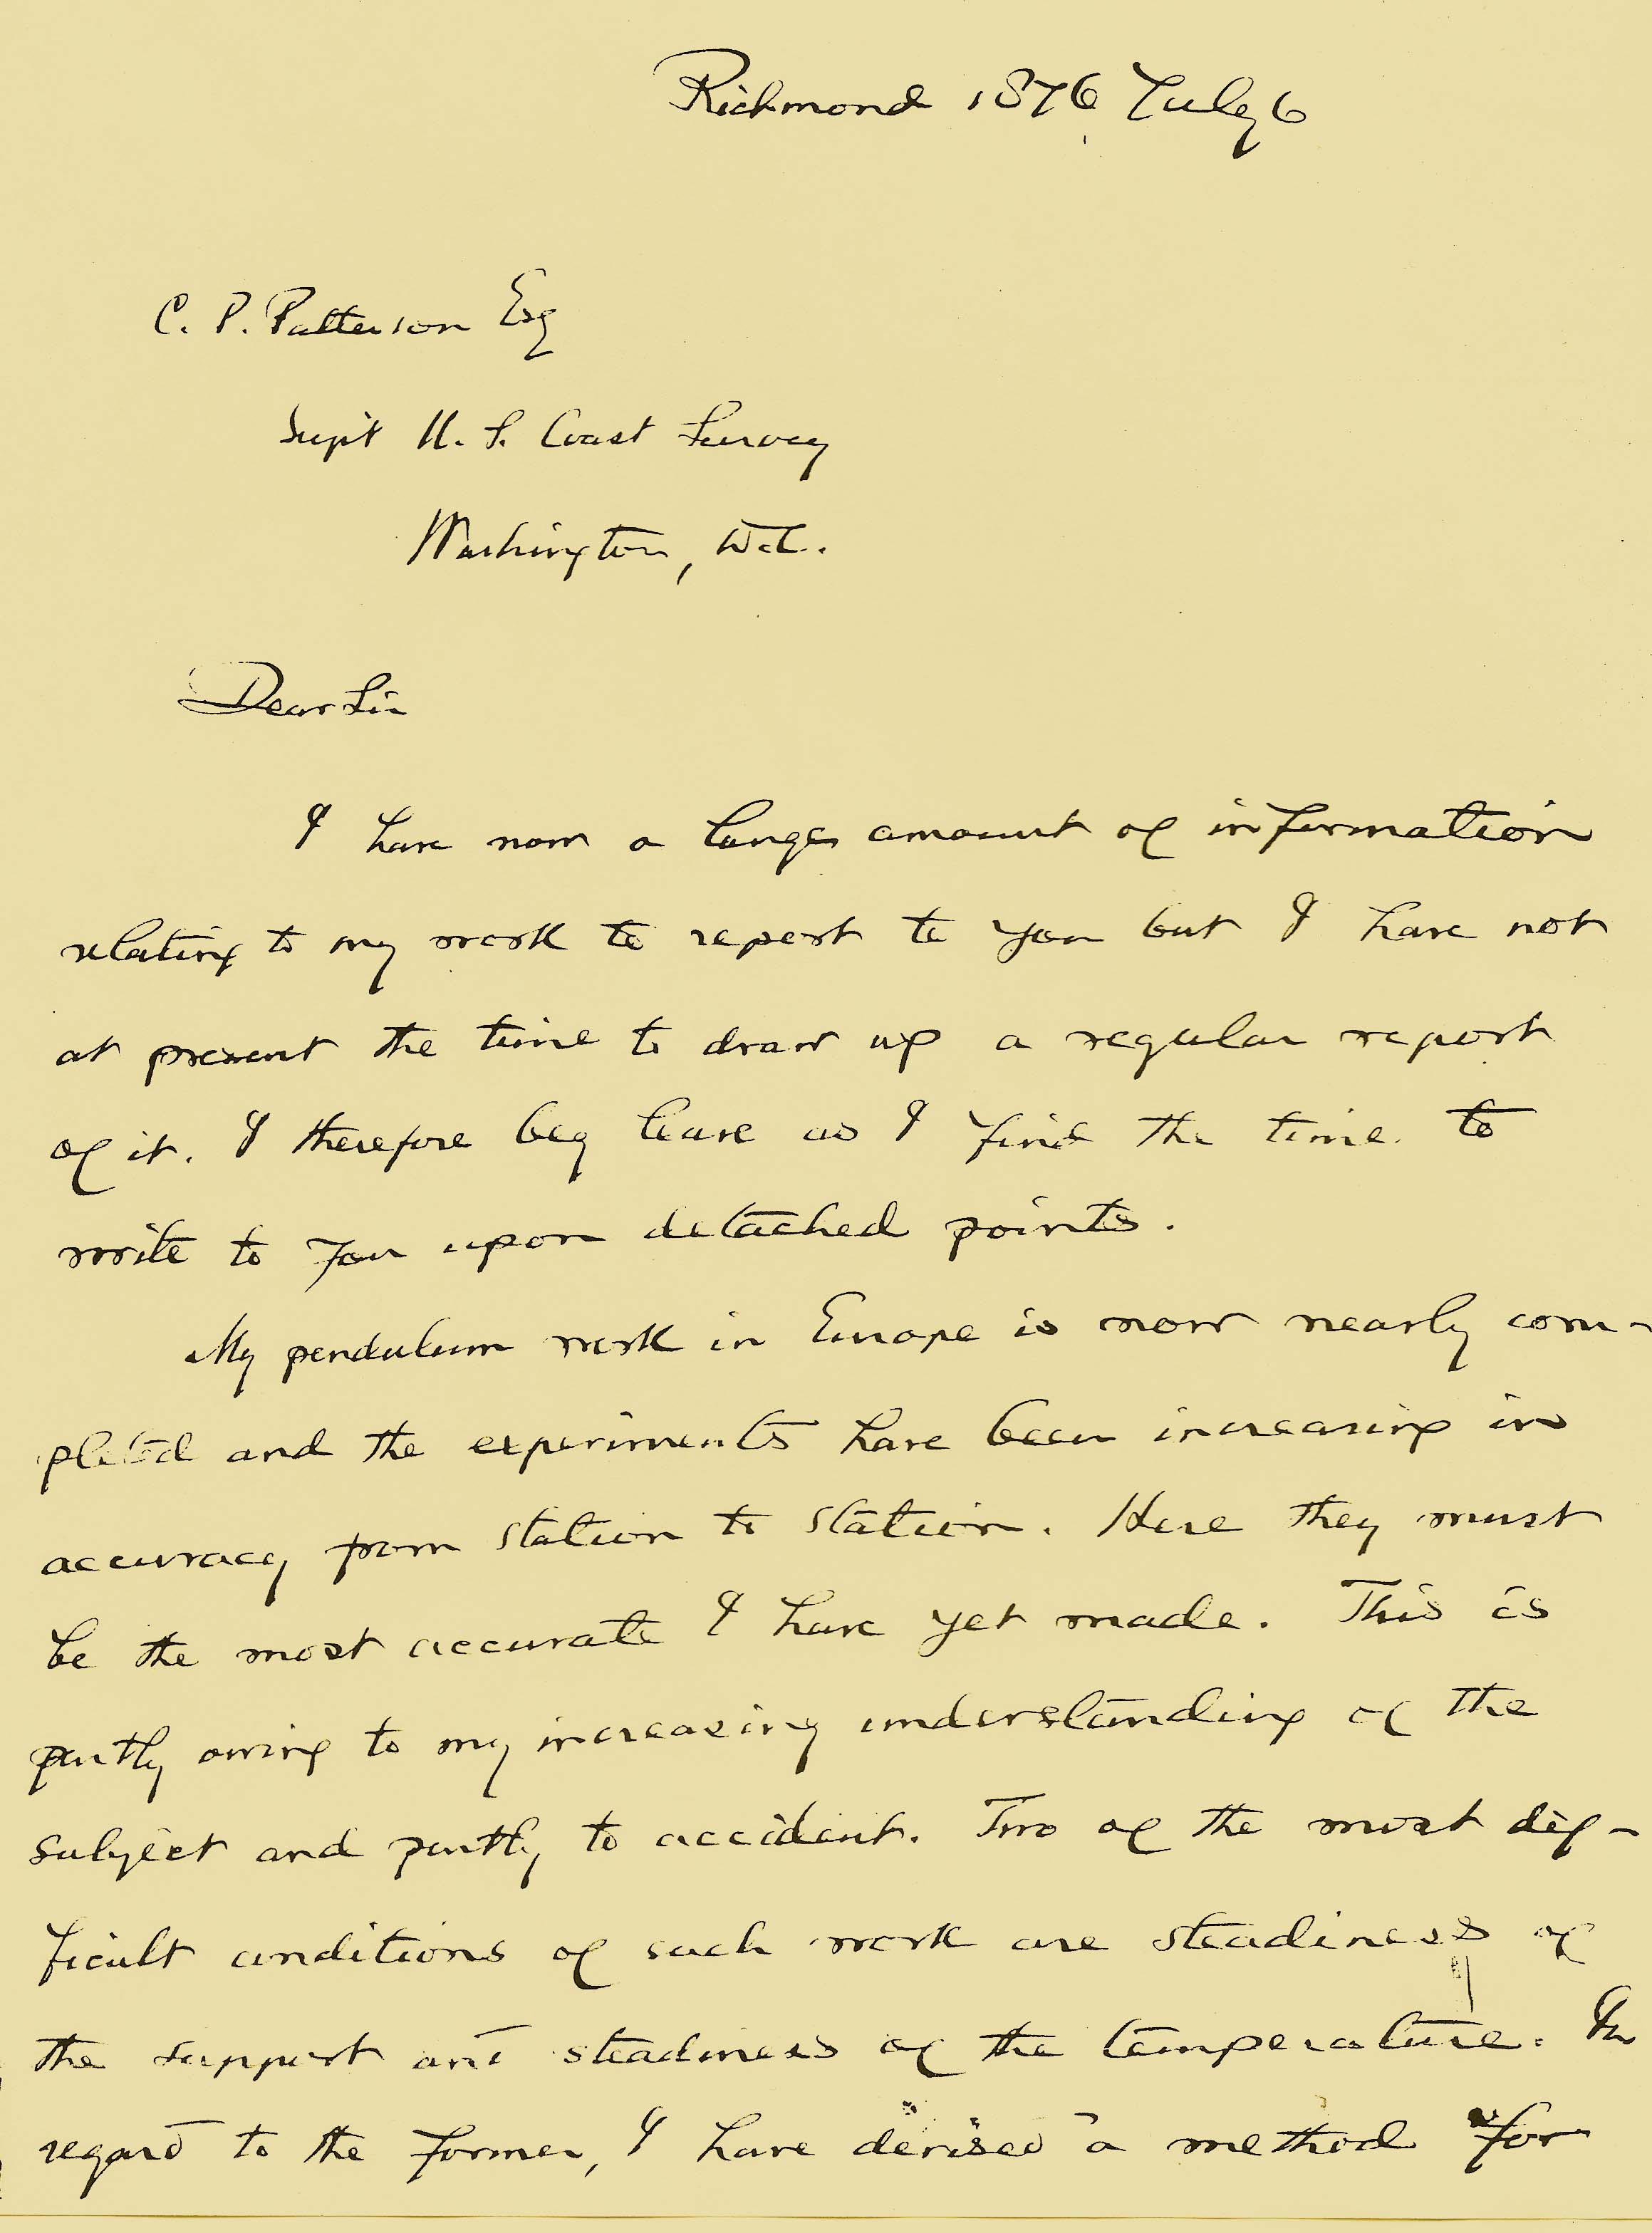 Richmond 1876 July 6
C. P. Patterson Esq
Supt U. S. Coast Survey
Washington, D.C.
Dear Sir
I have now a large amount of information
relating to my work to report to you but I have not
at present the time to draw up a regular report
of it. I therefore beg leave as I find the time to
write to you upon detached points.
My pendulum work in Europe is now nearly com-
pleted and the experiments have been increasing in
accuracy from station to station. Here they must
be the most accurate I have yet made. This is
partly owing to my increasing understanding of the
subject and partly to accident. Two of the most dif-
ficult conditions of such work are steadiness of
the support and steadiness of the temperature. In
regard to the former, I have devised a method for